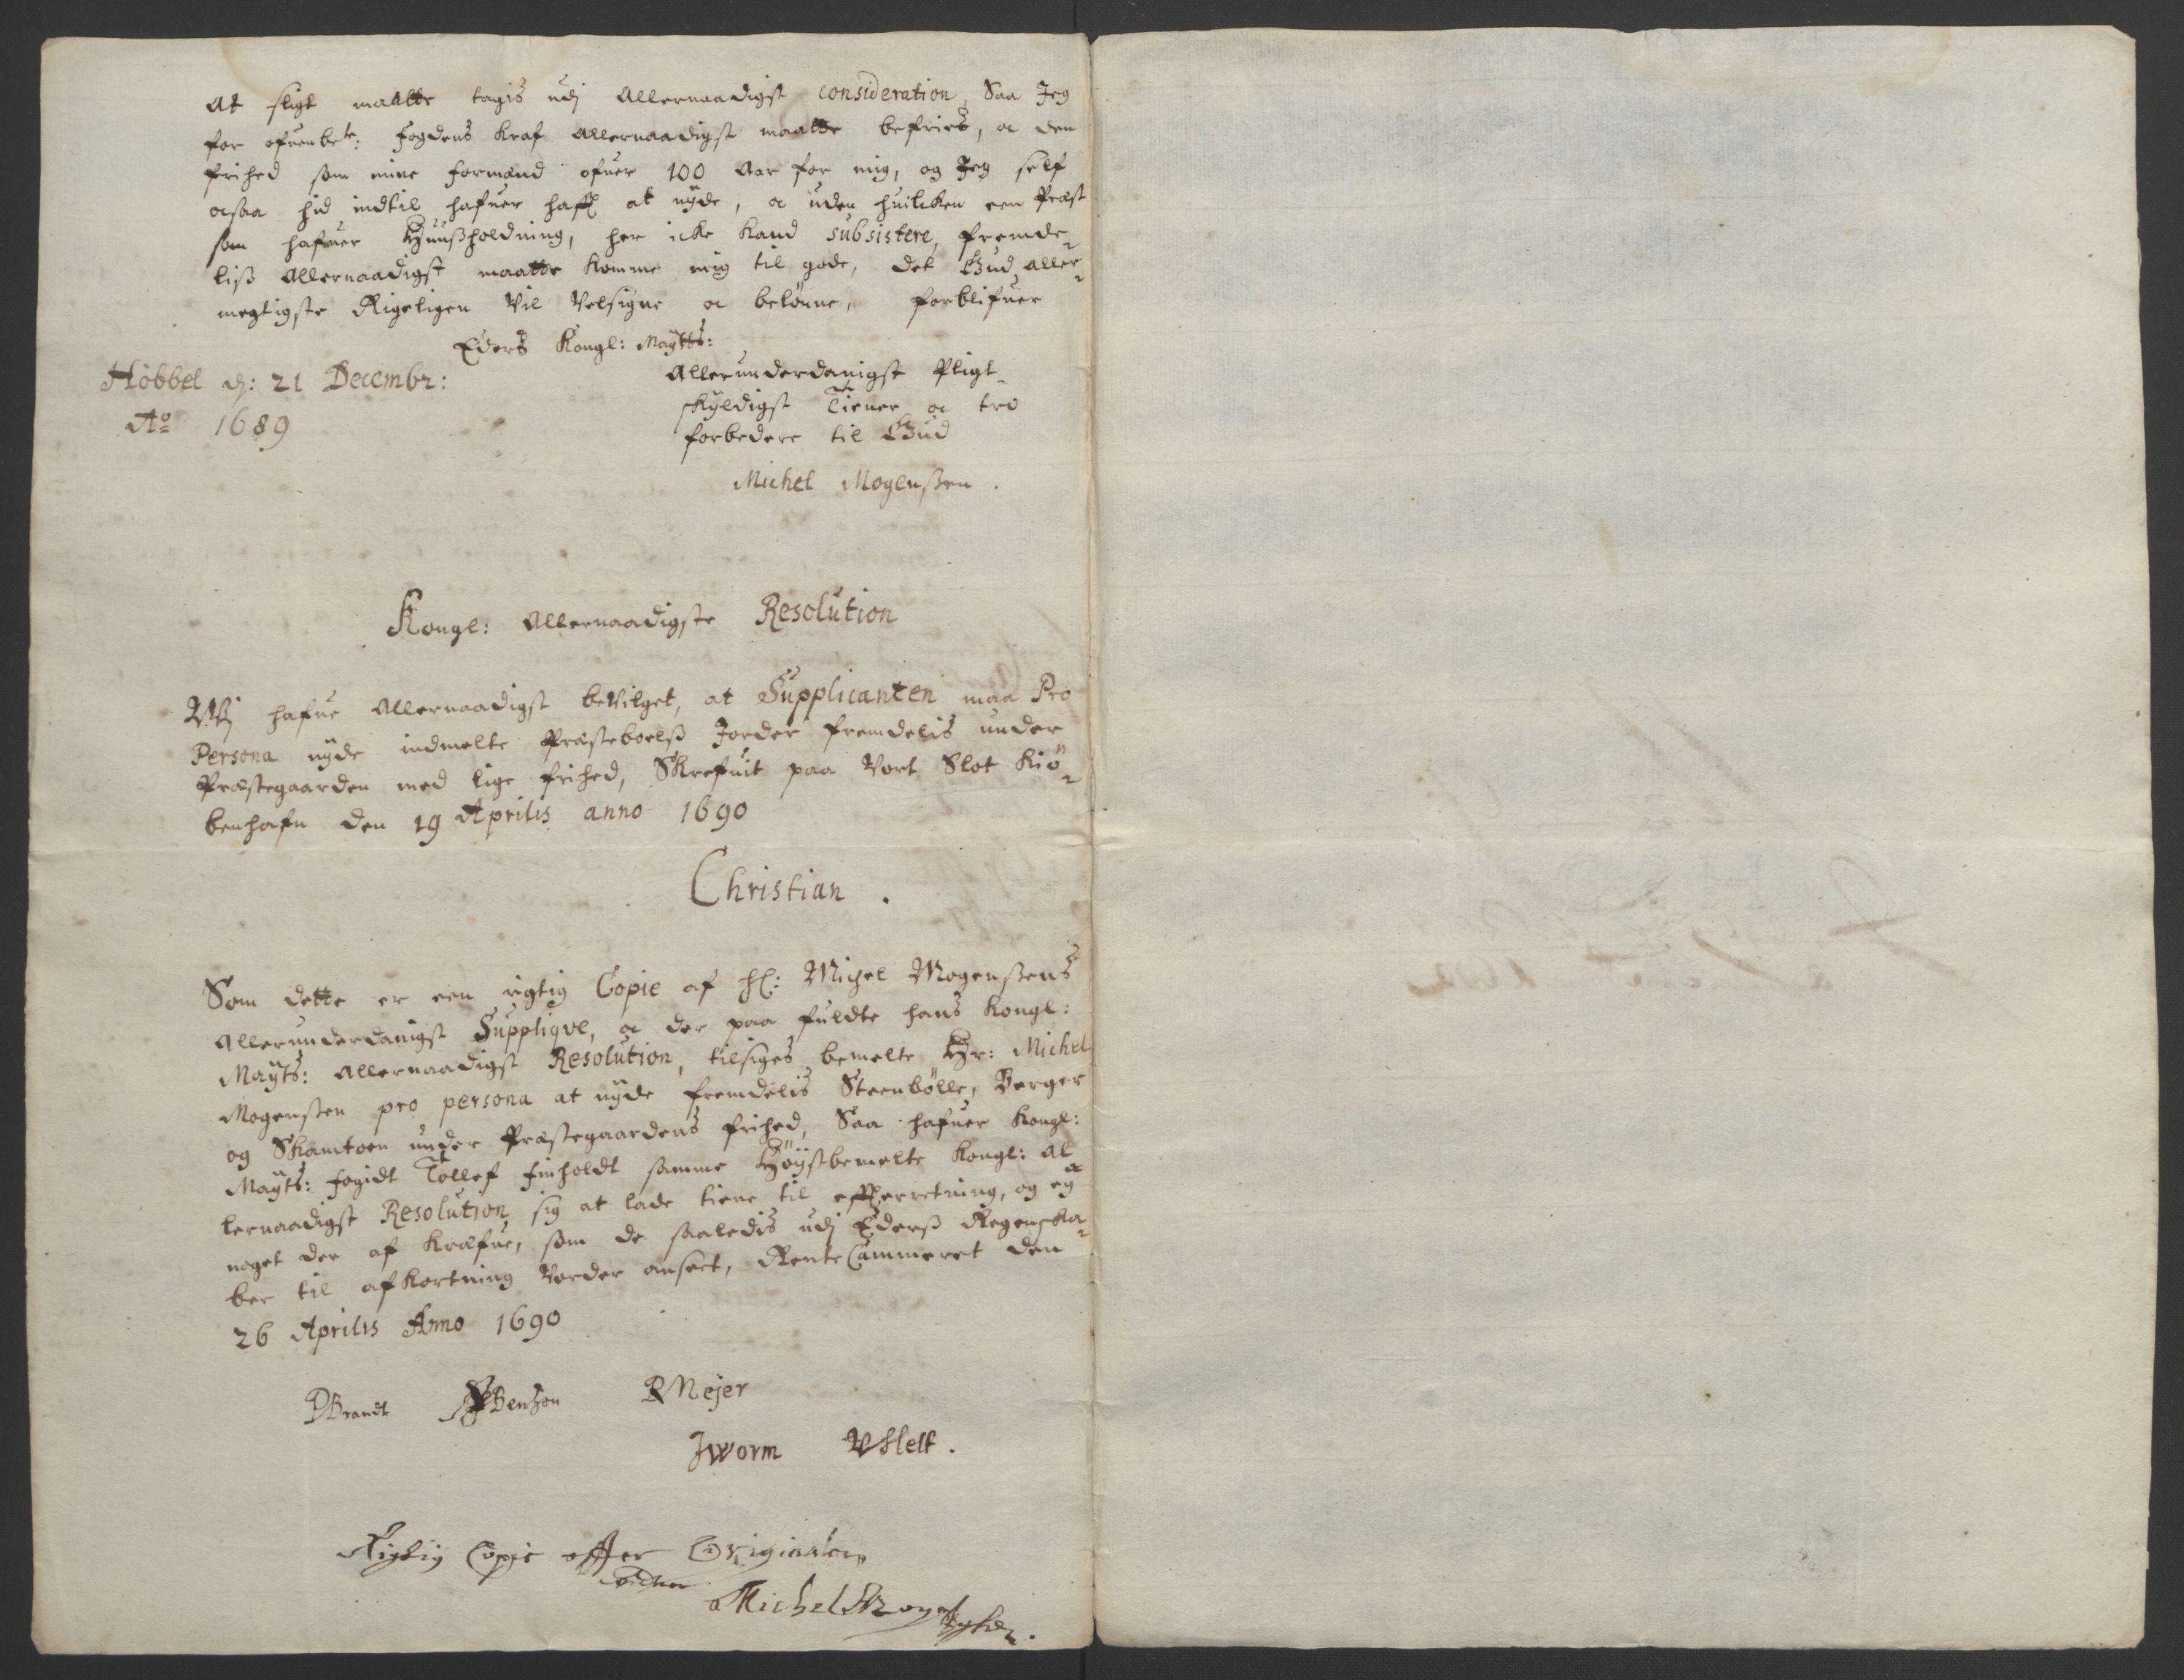 At sligt maatte tagis udj Allernaadigst consideration, Saa Jeg
for ofuenbete: Fogdens Kraf Allernaadigst maatte befries, oc den
frihed som mine formænd ofuer 100 Aar for mig, og Jeg self
ocsaa hid indtil hafuer hafft at nyde, oc uden huilcken een Præst
som hafuer Huusholdning, her icke kand subsistere, fremde-
liß Allernaadigst maatte komme mig til gode, det Gud Aller-
megtigste Rigeligen Vil Velsigne oc belønne, forblifuer
Eders Kongl: Maytts:
Høbbel d: 21 Decembr:
Ao 1689
Allerunderdanigst Pligt-
skyldigst Tiener oc tro
forbedere til Gud
Michel Mogenßen.
Kongl: Allernaadigste Resolution
Wj hafue Allernaadigst beVilget, at Supplicanten maa Pro
Persona nyde indmelte Præsteboelß Jorder fremdelis under
Præstegaarden med lige frihed, Skrefuit paa Vort Slot Kiø-
benhafn den 19 Aprilis anno 1690
Christian.
Som dette er een rigtig Copie af H: Michel Mogenßens
Allerunderdanigst Suppliqve, oc der paa fuldte hans Kongl:
Mayts: Allernaadigst Resolution, tilsiges bemelte Hr: Michel
Mogenßen pro persona at nyde fremdelis Steenbølle, Berger
og Skamtoen under Præstegaardens frihed, Saa hafuer Kongl:
Mayts: fogidt Tollef Finholdt samme Høystbemelte Kongl: Al-
lernaadigst Resolution sig at lade tiene til efterretning, og ey
noget der af Kræfue, som de saaledis udj Ederß Regenska-
ber til afkortning Vorder ansect, RenteCammeret den
26 Aprilis Anno 1690
PBrandt Benzon RMejer
JWorm VHelt.
Rigtig Copie effter Originalen
Michel Mogenßen.